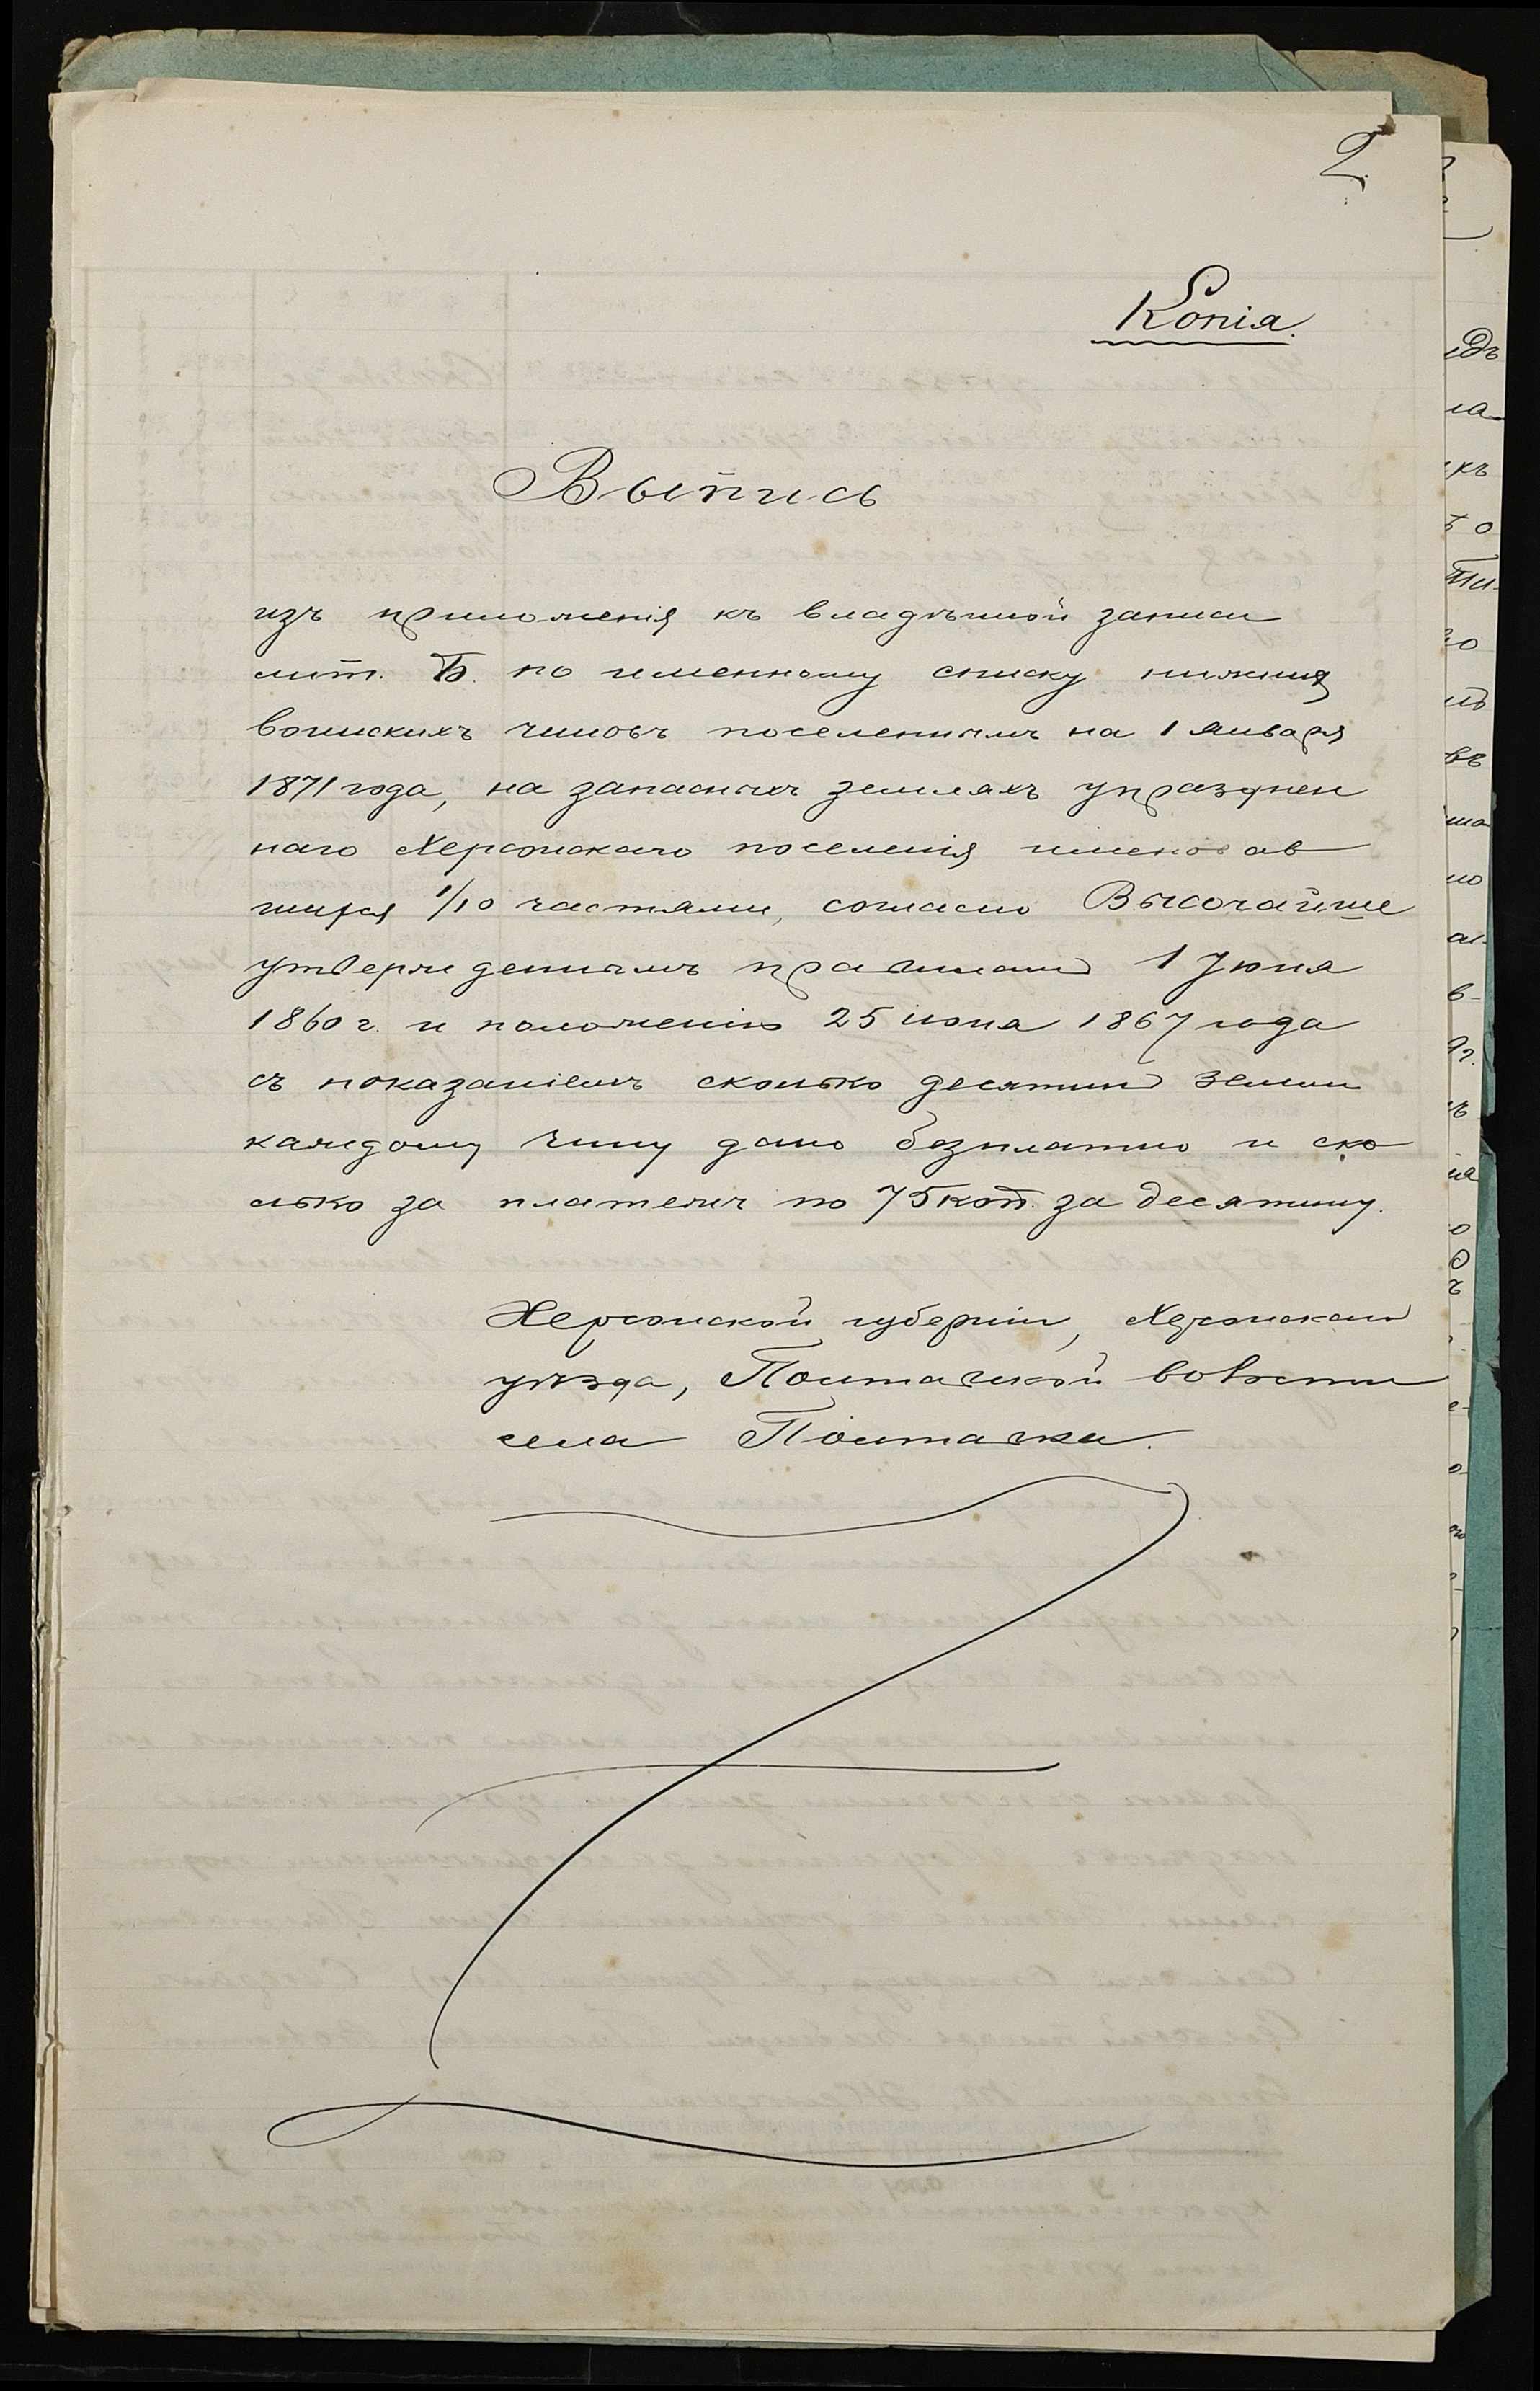 2
Копія.
Выпись
изъ приложенія къ владѣнной записи
лит. Б. по именному списку нижнихъ
воинскихъ чиновъ поселеннымъ на 1 января
1871 года, на запасныхъ земляхъ упразднен
наго Херсонскаго поселенія именовав
шихся 1/10 частями, согласно Высочайше
утвержденнымъ правиламъ 1 Іюня
1860 г. и положенію 25 июня 1867 года
съ показаніемъ сколько десятинъ земли
каждому чину дано безплатно и ско
лько за платежъ по 75 коп. за десятину.
Херсонской губерніи, Херсонскаго
уѣзда, Полтавской волости
села Полтавки.